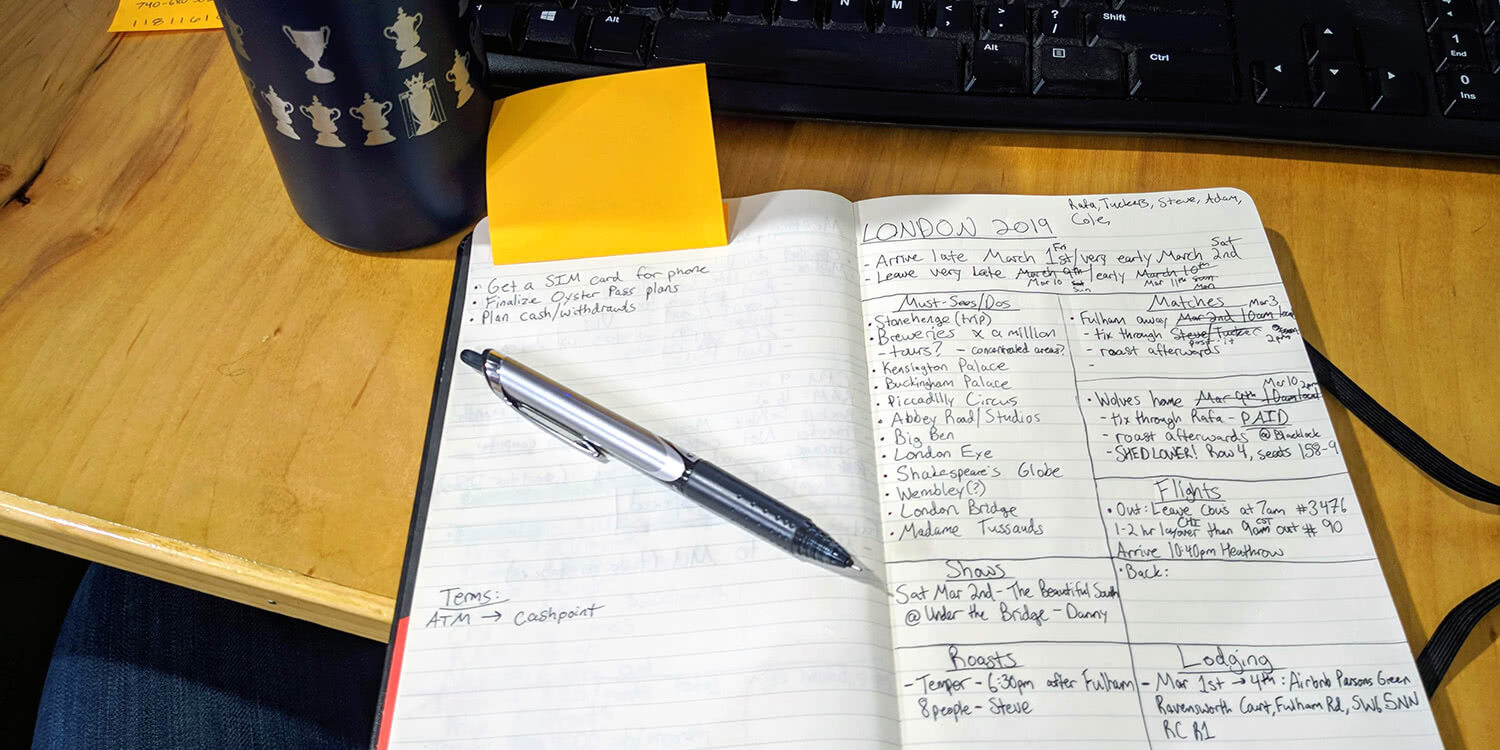 740-680
11811610
Alt
N
M
<
,
>
.
?
/
Shift
Alt
Ctrl
1
End
0
Ins
• Get a SIM card for phone
• Finalize Oyster Pass plans
• Plan cash/withdrawals
Terms:
ATM → cashpoint
Rafa, Tuckers, Steve, Adam,
Cole,
LONDON 2019
Fri Sat
- Arrive late March 1st/very early March 2nd
- Leave very late March 9th/early March 10th
Mar 10 Sat Mar 11th
Sun Mon
Must-Sees/Dos
• Stonehenge (trip)
• Breweries x a million
- tours? - concentrated areas?
• Kensington Palace
• Buckingham Palace
• Piccadilly Circus
• Abbey Road/Studios
• Big Ben
• London Eye
• Shakespeare's Globe
• Wembley(?)
• London Bridge
• Madame Tussauds
Shows
Sat Mar 2nd - The Beautiful South
@ Under the Bridge - Danny
Roasts
- Temper - 6:30pm after Fulham
8 people - Steve
Matches
Mar 3
• Fulham away Mar 2nd 10am local
2pm
- tix through Steve/Tucker
- roast afterwards
-
Mar 10 2pm
• Wolves home Mar 9th 10am local
- tix through Rafa - PAID
- roast afterwards @ Blacklock
- SHED LOWER! Row 4, seats 158-9
Flights
• Out: Leave Cbus at 7am #3476
CHI CST
1-2 hr layover than 9am out #90
Arrive 10:40pm Heathrow
• Back:
Lodging
- Mar 1st → 4th: Airbnb Parsons Green
Ravensworth Court, Fulham Rd, SW6 5NN
RC R1